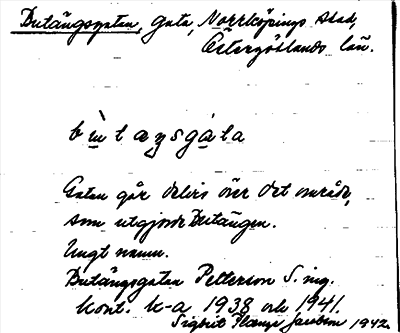 Butängsgatan, gata, Norrköpings stad,
Östergötlands län.
bu̱taŋsga̱ta
Gatan går delvis över det område,
som utgjorde Butängen.
Ungt namn.
Butängsgatan Petterson S. ing.
kont. k-a 1938 och 1941.
Sigbrit Plænge Jacobson 1942.